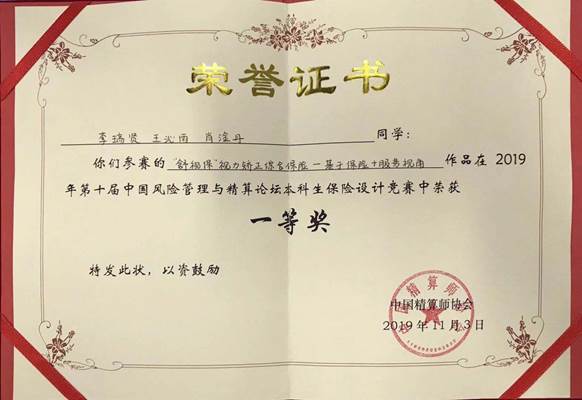 荣誉证书
李瑞贤 王 雨 肖淦丹 同学:
你们参赛的"舒相保"视力矫正综合保险—基于保险+服务视角 作品在 2019
年第十届中国风险管理与精算论坛本科生保险设计竞赛中荣获
一等奖
特发此状,以资鼓励
中国精算师协会
2019年11月3日